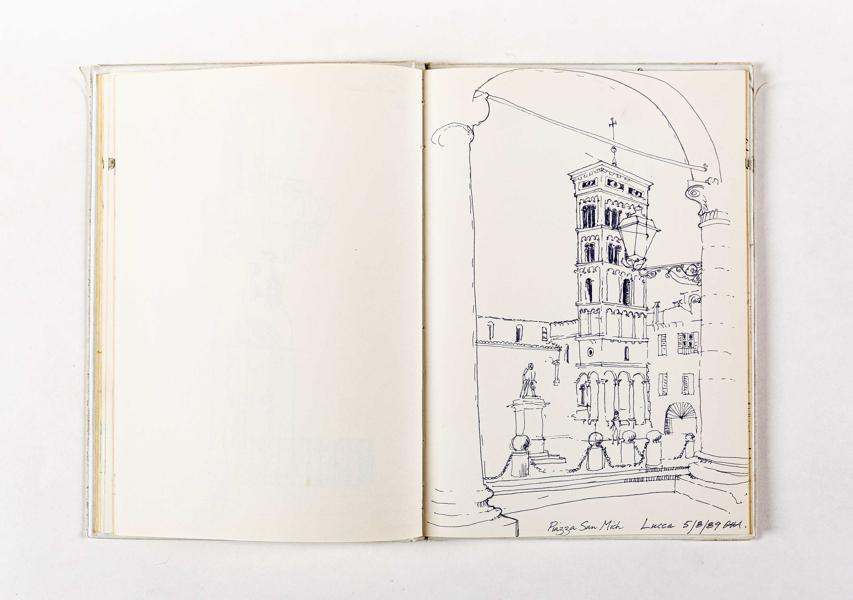 Piazza San Mich Lucca 5/8/89